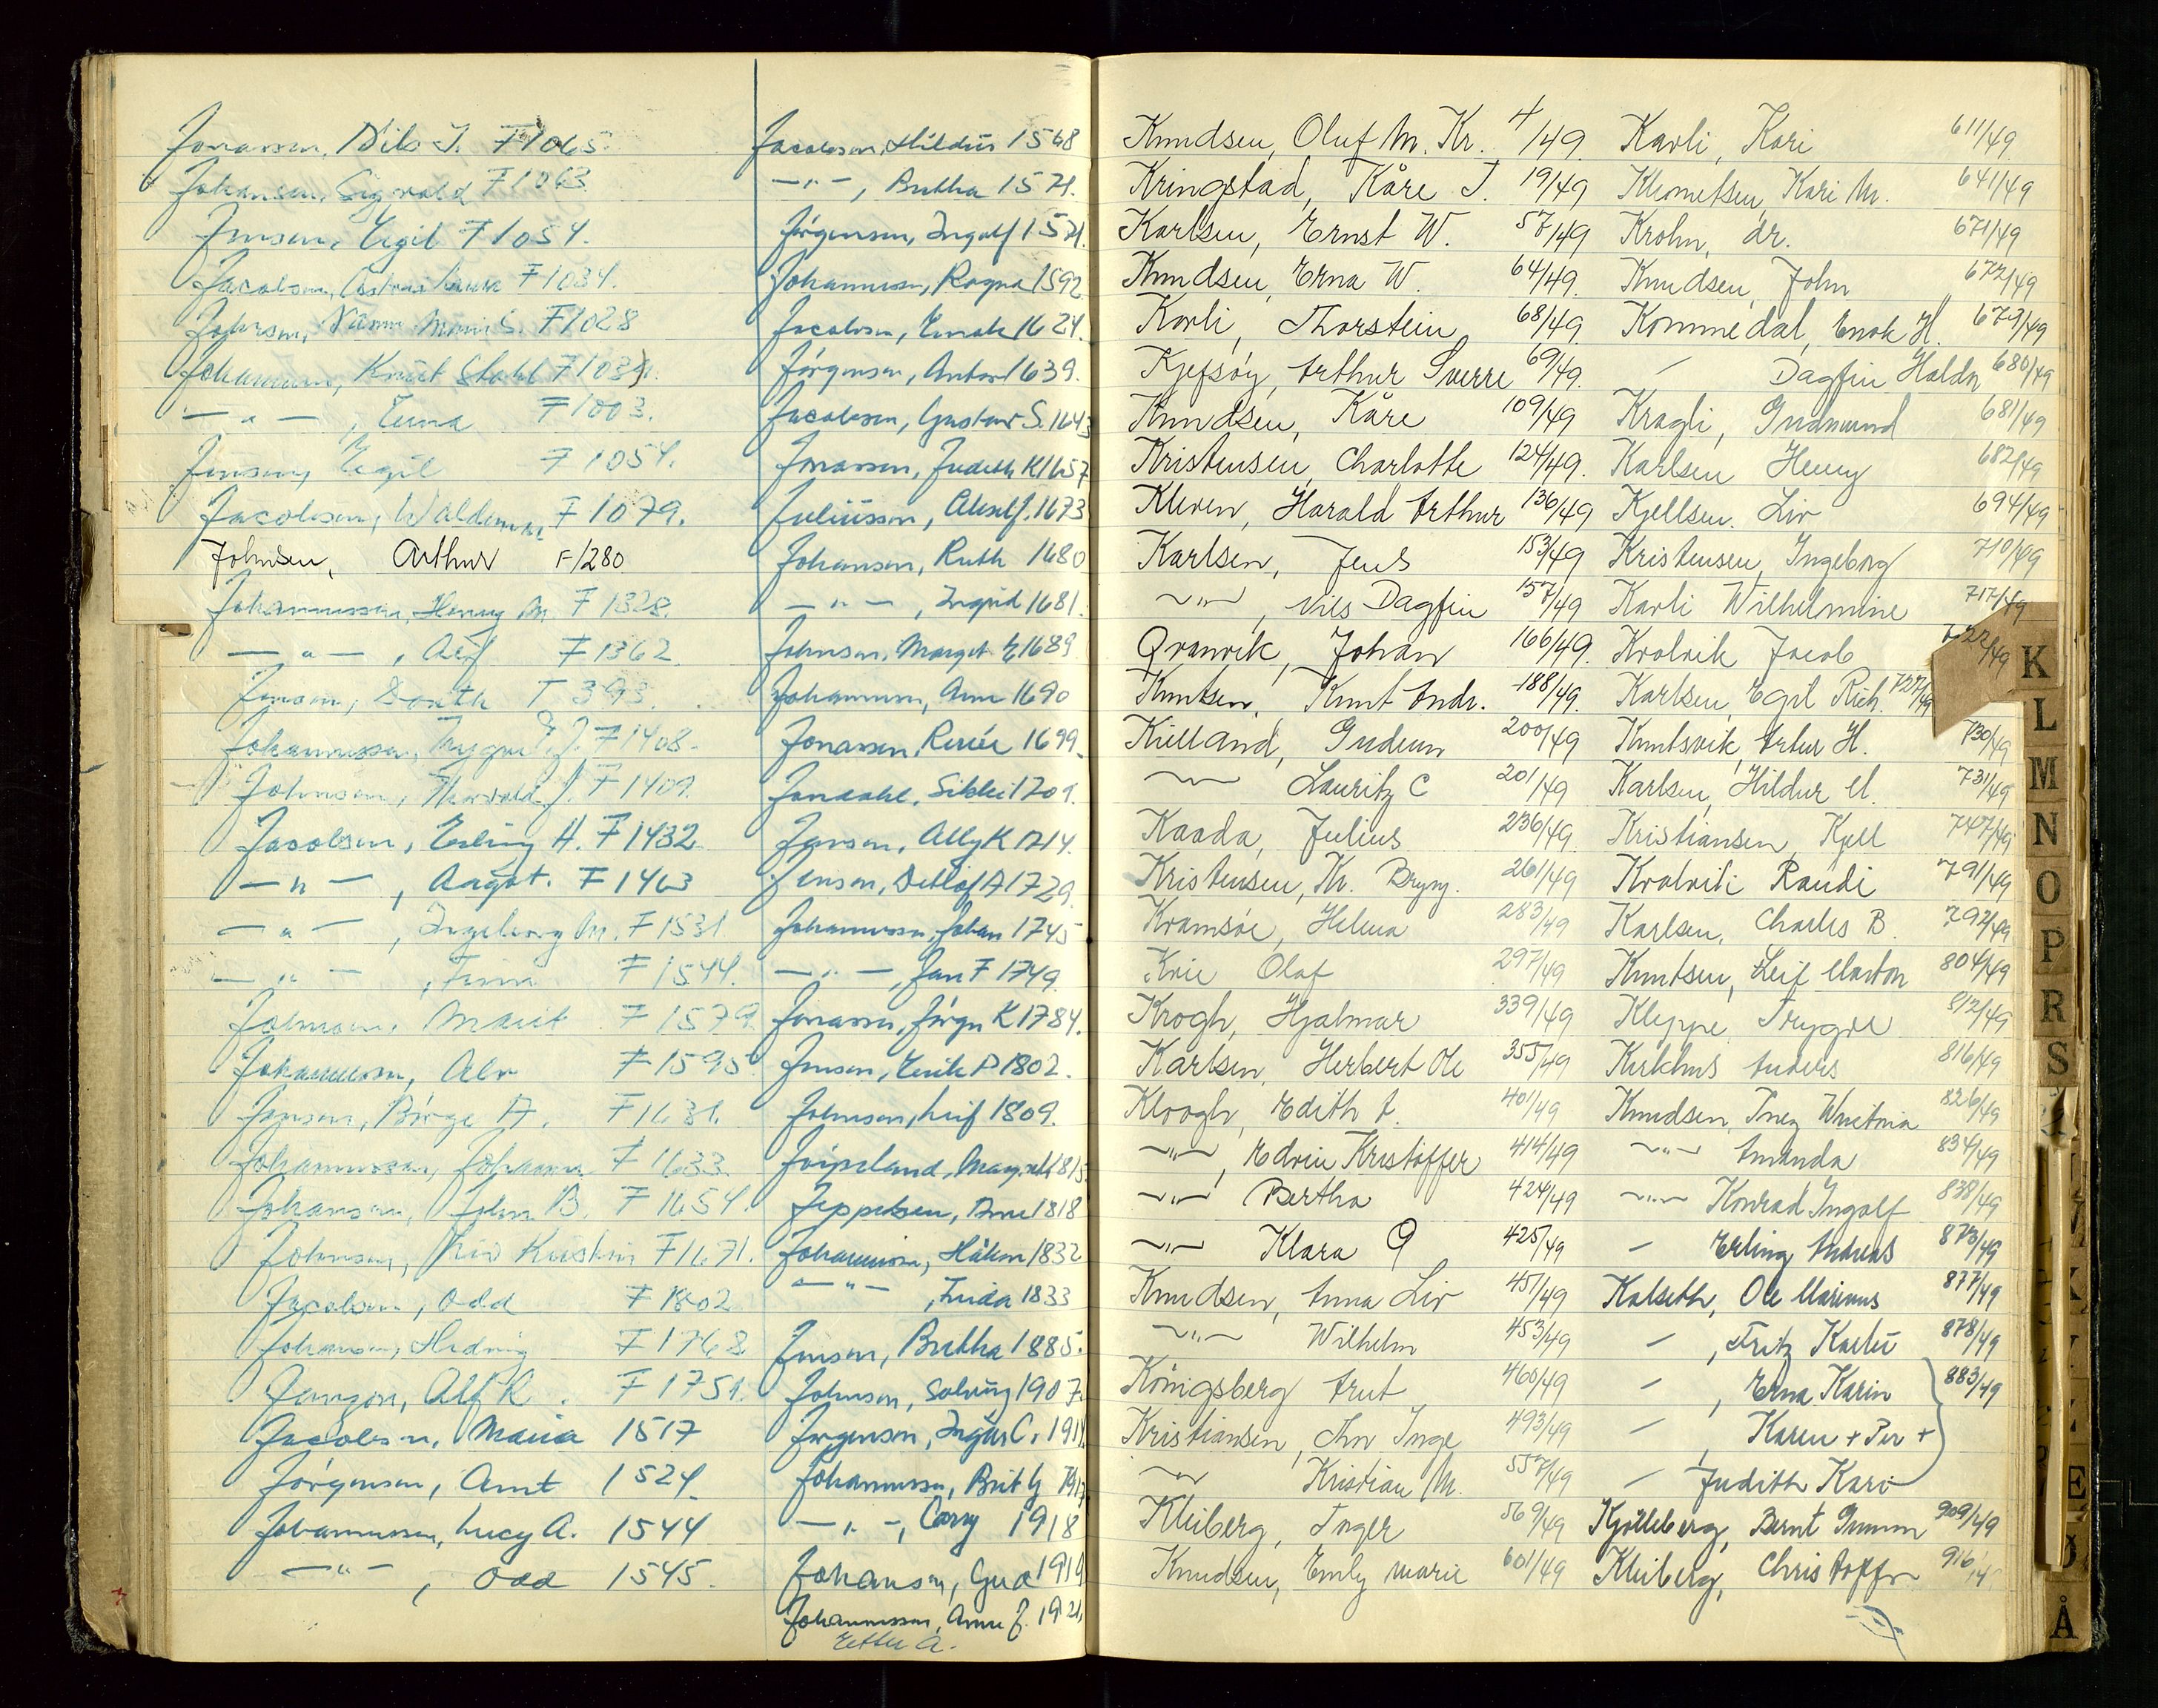 Jonassen, Nils J. F1065
Johansen, Sigvald F1063
Jensen, Egil F1054.
Jacobsen, F1034.
Johnsen, F1028
Johannesen, Knut Stahl
— " — , Erna F1003.
Jensen, Egil F1054.
Jacobsen, Waldemar, F1079.
Johnsen, Arthur F1280
Johannessen, Henry M. F1328.
— " — , Alf F1362.
Jensen, 393.
Johannessen, Trygve J. F1408.
Johnsen, Thorvald J. F1409.
Jacobsen, Erling H. F1432
— " — , Aagot. F1463
— " — , Ingeborg M. F1531
— " — , F1544.
Johnsen, Marit F1579
Johannessen, Alv F1595
Jensen, Børge A. F1631.
Johannessen, Johanna F1633
Johansen, John B. F1654.
Johnsen, F1671.
Jacobsen, Odd F1802
Johansen, Hedvig F1768
Janzon, Alf R. F1751.
Jacobsen, Maria 1517
Jørgensen, Arnt 1524.
Johannessen, Lucy A. 1544
— " — , Odd 1545.
Jacobsen, Hildur 1568
— " — , Berthe 1571.
Jørgensen, Ingolf 1571.
Johannessen, Ragna 1592
Jacobsen, Enok 1624.
Jørgensen, Anton 1639.
Jacobsen, Gustav S. 1643
Jonassen, Judith K 1657
Juliussen, 1673
Johansen, Ruth 1680
— " — , Ingrid 1681.
Johnsen, Margit E 1689
Johannessen, Anne 1690
Jonassen, Renée 1699.
Jondahl, 1709.
Jensen, Ally K 1714.
Jensen, Detlof A 1729.
Johannessen, Johan 1745
— " — , Jan F 1749.
Jonassen, Jørgen K 1784.
Jensen, Erik P 1802.
Johnsen, Leif 1809.
1815
Jeppesen, Anne 1818
Johannessen, Håkon 1832
— " — , Frida 1833
Jensen, Berthe 1885.
Johnsen, Solveig 1907.
Jørgensen, Inger C.
Johannessen, Brit G
— " — , Carry 1918
Johansen, 1919
Johannessen, Anne J. 1921.
Knudsen, Oluf M. Kr. 4/49.
Kringstad, Kåre J. 19/49
Karlsen, Ernst W. 57/49
Knudsen, Erna W. 64/49.
Kavli, Thorstein 68/49
Kjefsøy, Arthur Sverre 69/49.
Knudsen, Kåre 109/49
Kristensen, Charlotte 124/49.
Kleven, Harald Arthur 130/49
Karlsen, Jens 153/49
— " — , Nils Dagfin 157/49
Qvamvik, Johan 166/49.
Knutsen, Knut Andr. 188/49.
Kielland, Gudrun 200/49
— Lauritz C 201/49
Kaada, Julius 236/49.
Kristensen, Kr. Bryng. 261/49
Kvamsøe, Helena 283/49
Kvie Olaf 297/49
Krogh, Hjalmar 339/49
Karlsen, Herbert Ole 355/49
Kloogh, Edith A. 401/49
— " — , Edvin Kristoffer 414/49
— " — Bertha 424/49
— " — Klara Q 425/49
Knudsen, Anna Liv 451/49
— " — Wilhelm 453/49
Königsberg Arut 460/49
Kristiansen, Inge 493/49
— " — Kristian M. 557/49
Kleiberg, Inger 569/49
Knudsen, Emly Marie 601/49
Kavli, Kari 611/49
Klemetsen, Kari M. 641/49
Krohn, dr. 671/49
Knudsen, John 672/49
Kommedal, Enok H. 673/49
— Dagfin Haldn 680/49
Kragli, Gudmund 681/49
Karlsen Henny 682/49
Kjellsen. Liv 694/49
Kristensen, Ingeborg 710/49
Kavli Wilhelmine 717/49
Kvalvik Jacob 722/49
Karlsen, Egil Rich. 727/49
Knutsvik, Artur H. 730/49
Karlsen, Hildur M. 731/49
Kristiansen, Kjell 747/49
Kvalvik Randi 791/49
Karlsen, Charles B. 792/49
Knutsen, Leif Marton 804/49
Kleppe, Trygve 812/49
Kirkhus Anders 816/49
Knudsen, Inez 826/49
— " — Amanda 834/49
— " — Konrad Ingolf 838/49
— Erling Andreas 873/49
Kalseth, Ole Marinus 877/49
— , Fritz 878/49
— , Erna Karin 883/49
— , Karen + Per +
— Judith Kari
Kjölleberg, Bernt 909/49
Kleiberg, Christoffer 916
K
L
M
N
O
P
R
S
Å